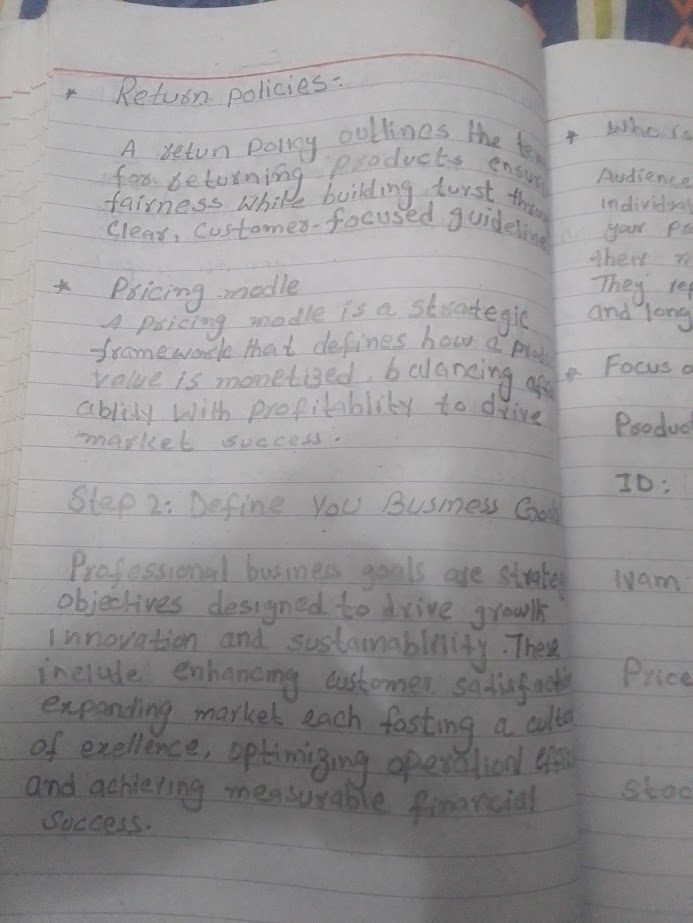 * Return policies:-
A retun policy outlines the
for returning products
fairness while building turst
clear, customer-focused
* Pricing modle
A pricing modle is a strategic
framework that defines how a
value is monetized, balancing
ablity with profitablity to drive
market success.
Step 2: Define You Business
Professional business goals are
objectives designed to drive growth
innovation and
include enhancing customer
expanding market each fosting a
of exellence, optimizing operation
and achieving measurable financial
success.
* Who is
Audience
your
They
and long
* Focus
ID:
Price